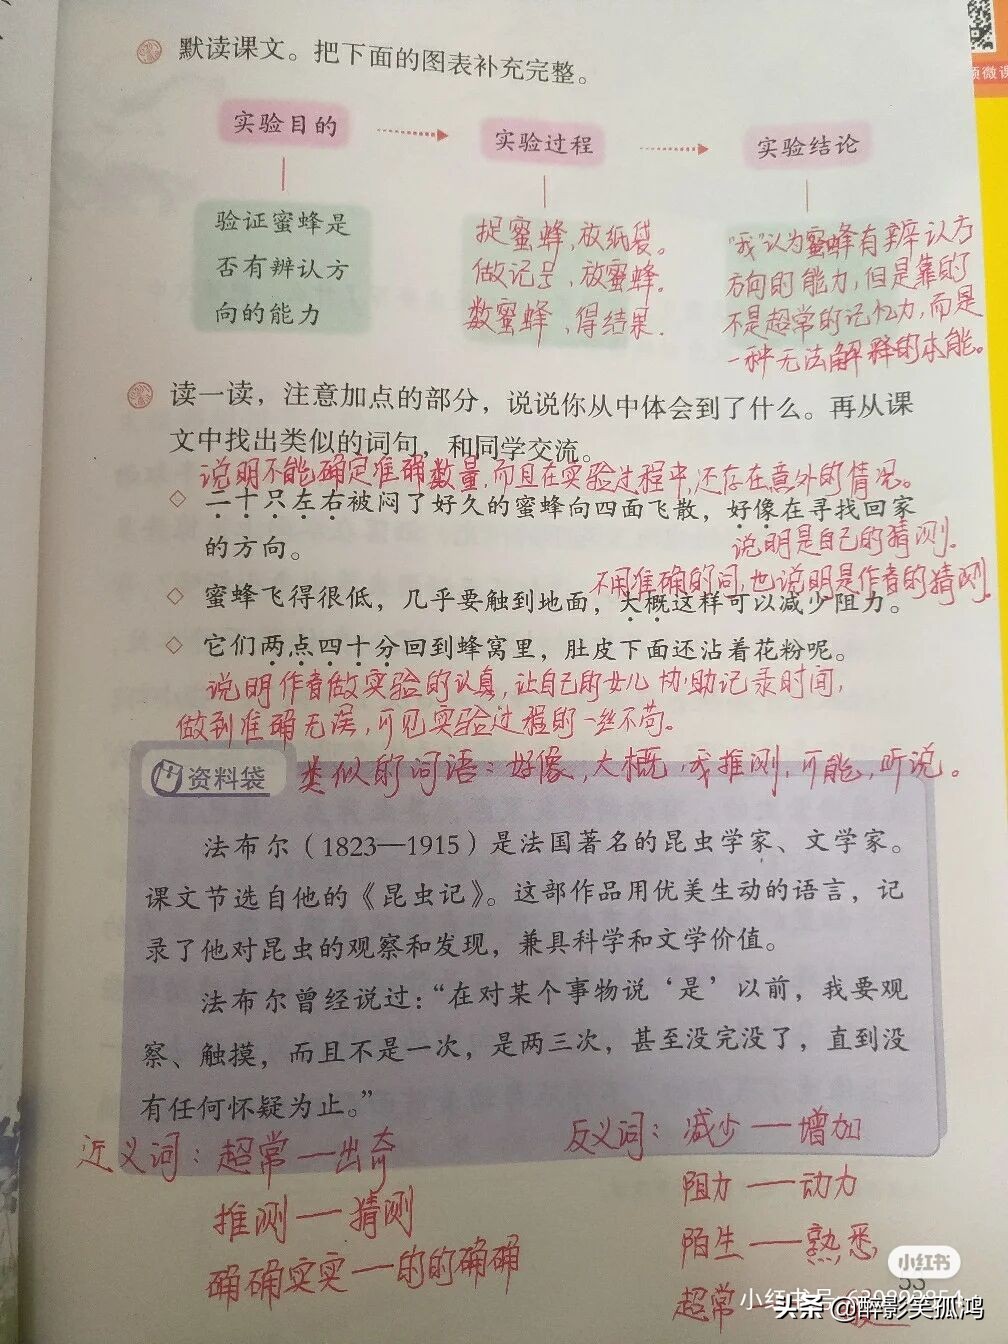 默读课文。把下面的图表补充完整。
频微课
实验目的
实验过程
实验结论
验证蜜蜂是
否有辨认方
向的能力
捉蜜蜂,放纸袋。
做记号,放蜜蜂。
数蜜蜂,得结果。
“我”认为蜜蜂有辨认方
方向的能力,但是靠的
不是超常的记忆力,而是
一种无法解释的本能。
读一读，注意加点的部分，说说你从中体会到了什么。再从课
文中找出类似的词句，和同学交流。
说明不能确定准确数量,而且在实验过程中,还存在意外的情况。
二十只左右被闷了好久的蜜蜂向四面飞散，好像在寻找回家
的方向。
说明是自己的猜测。
不用准确的词,也说明是作者的猜测。
蜜蜂飞得很低，几乎要触到地面，大概这样可以减少阻力。
它们两点四十分回到蜂窝里，肚皮下面还沾着花粉呢。
说明作者做实验的认真,让自己的女儿协助记录时间,
做到准确无误,可见实验过程的一丝不苟。
类似的词语:好像,大概,我推测,可能,听说。
资料袋
法布尔（1823—1915）是法国著名的昆虫学家、文学家。
课文节选自他的《昆虫记》。这部作品用优美生动的语言，记
录了他对昆虫的观察和发现，兼具科学和文学价值。
法布尔曾经说过：“在对某个事物说‘是’以前，我要观
察、触摸，而且不是一次，是两三次，甚至没完没了，直到没
有任何怀疑为止。”
近义词:超常—出奇
推测—猜测
确确实实—的的确确
反义词:减少—增加
阻力—动力
陌生—熟悉
超常—
小红书
53
小红书号
头条 @醉影笑孤鸿